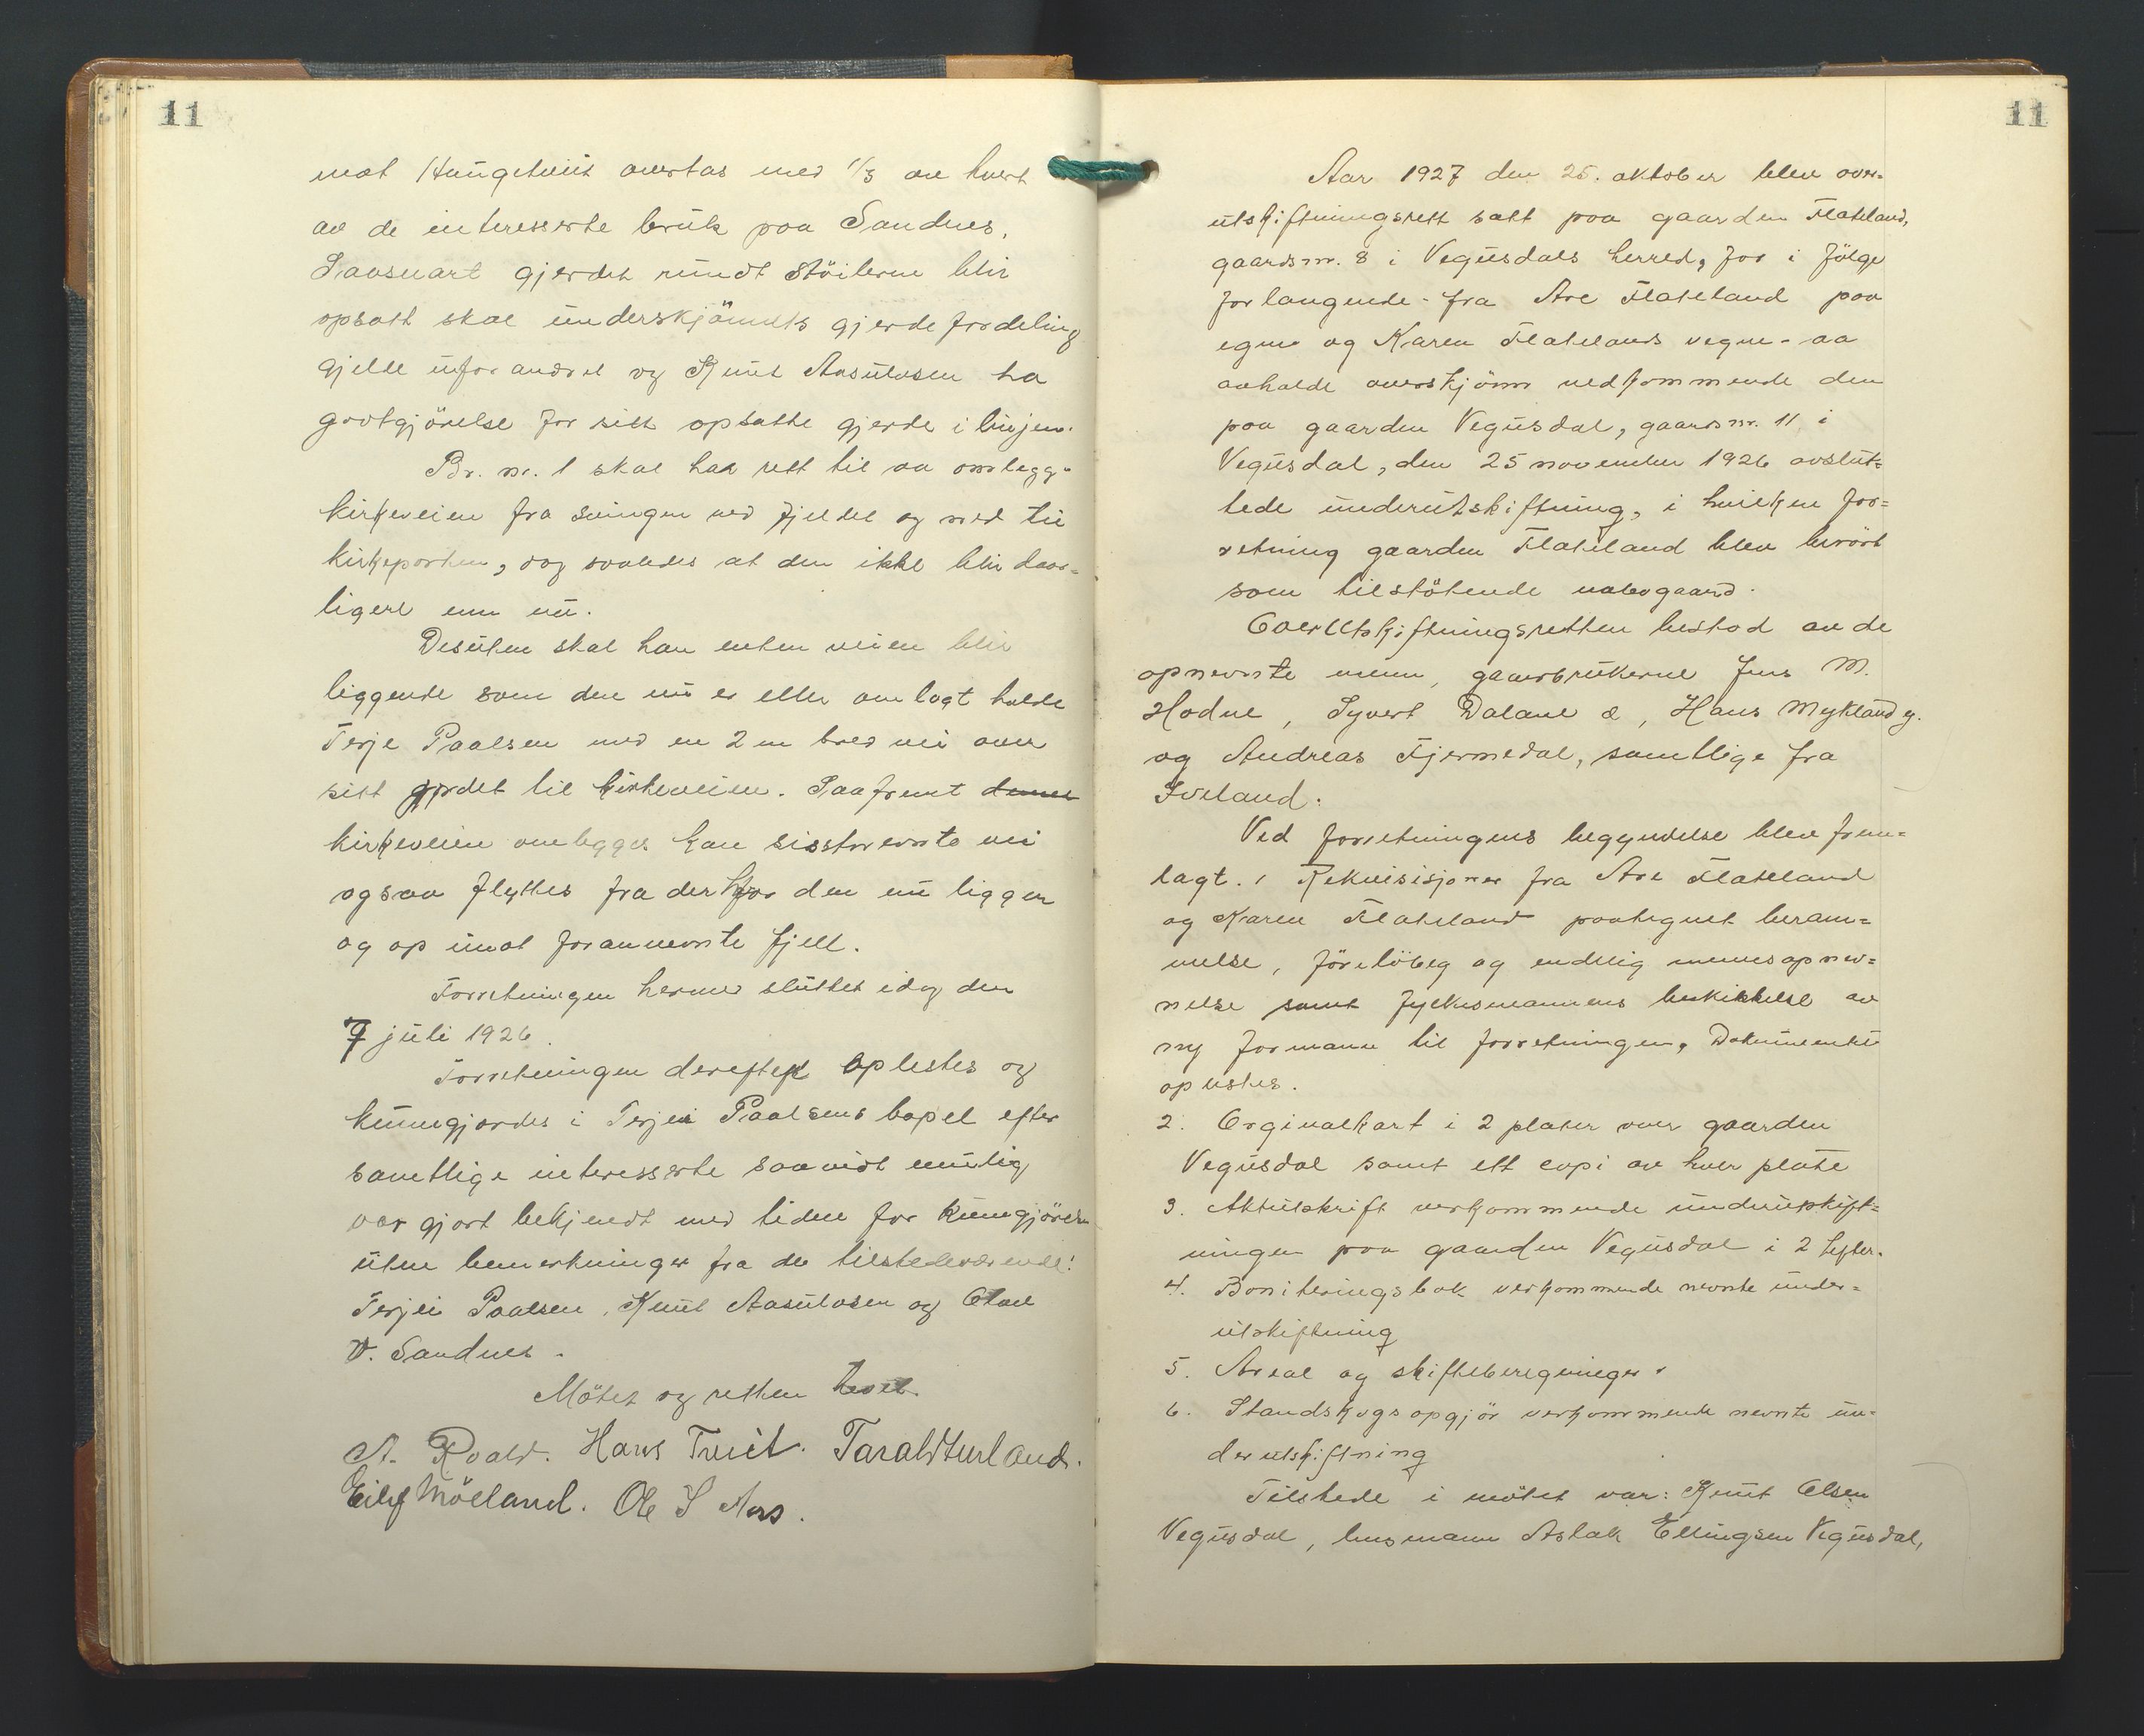 11
mot Haugetveit overtas med 1/3 av hvert
av de interesserte bruk paa Sandnes.
Saasnart gjerdet rundt Stöilerne blir
opsatt skal underskjönnets gjerdefordeling
gjelde uforandret og Knut Aasulvsen ha
godtgjörelse for sitt opsatte gjerde i linjen.
Br. nr. 1 skal haa rett til aa omlegge
kirkeveien fra svingen ved fjeldet og ned til
kirkeporten, dog saaledes at den ikke blir daar=
ligere enn nu.
Desuten skal han enten veien blir
liggende som den nu er eller omlagt holde
Terje Paalsen med en 2 m bred vei over
sitt jordet til kirkeveien. Saafremt denne
kirkeveien omlegges kan sisstnevnte vei
ogsaa flyttes fra der hvor den nu ligger
og op imot forannevnte fjell.
Forretningen hermed sluttet idag den
7 juli 1926.
Forretningen derefter oplestes og
kunngjordes i Terjei Paalsens bopel efter
samtlige interesserte saavidt mulig
var gjort bekjendt med tiden for kunngjörelsen
uten bemerkninger fra de tilstedeværende:
Terjei Paalsen, Knut Aasulvsen og Olav
T. Sandnes.
Mötet og retten hevet.
A. Roald. Hans Tveit. Tarald Hurland.
Eilef Mölland. Ole S Aas.
11
Aar 1927 den 25. oktober blev over=
utskiftningsrett satt paa gaarden Flateland,
gaardsnr. 8 i Vegusdals herred, for i fölge
forlangende fra Are Flateland paa
egne og Karen Flatelands vegne - aa
avholde overskjönn vedkommende den
paa gaarden Vegusdal, gaardsnr. 11 i
Vegusdal, den 25 november 1926 avslut=
tede underutskiftning, i hvilken for=
retning gaarden Flateland blev berört
som tilstötende nabogaard.
Overutskiftningsretten bestod av de
opnevnte menn, gaardbrukerne Jens M.
Hodne, Syvert Dalane æ, Hans Mykland y.
og Andreas Fjermedal, samtlige fra
Iveland.
Ved forretningens begyndelse blev frem=
lagt. 1 Rekvisisjoner fra Are Flateland
og Karen Flateland paategnet beram=
melse, förelöbeg og endelig mennsopnev=
nelse samt fylkesmannens beskikkelse av
ny formann til forretningen, Dokumentet
oplestes.
2. Orginalkart i 2 plater over gaarden
Vegusdal samt ett copi av hver plate
3. Aktutskrift verkommende underutskift=
ningen paa gaarden Vegusdal i 2 hefter.
4. Boniteringsbok verkommende nevnte under=
utskiftning
5. Areal og skifteberegninger.
6. Standskogsopgjör verkommende nevnte un=
derutskiftning
Tilstede i mötet var: Knut Olsen
Vegusdal, lensmann Aslak Ellingsen Vegusdal,